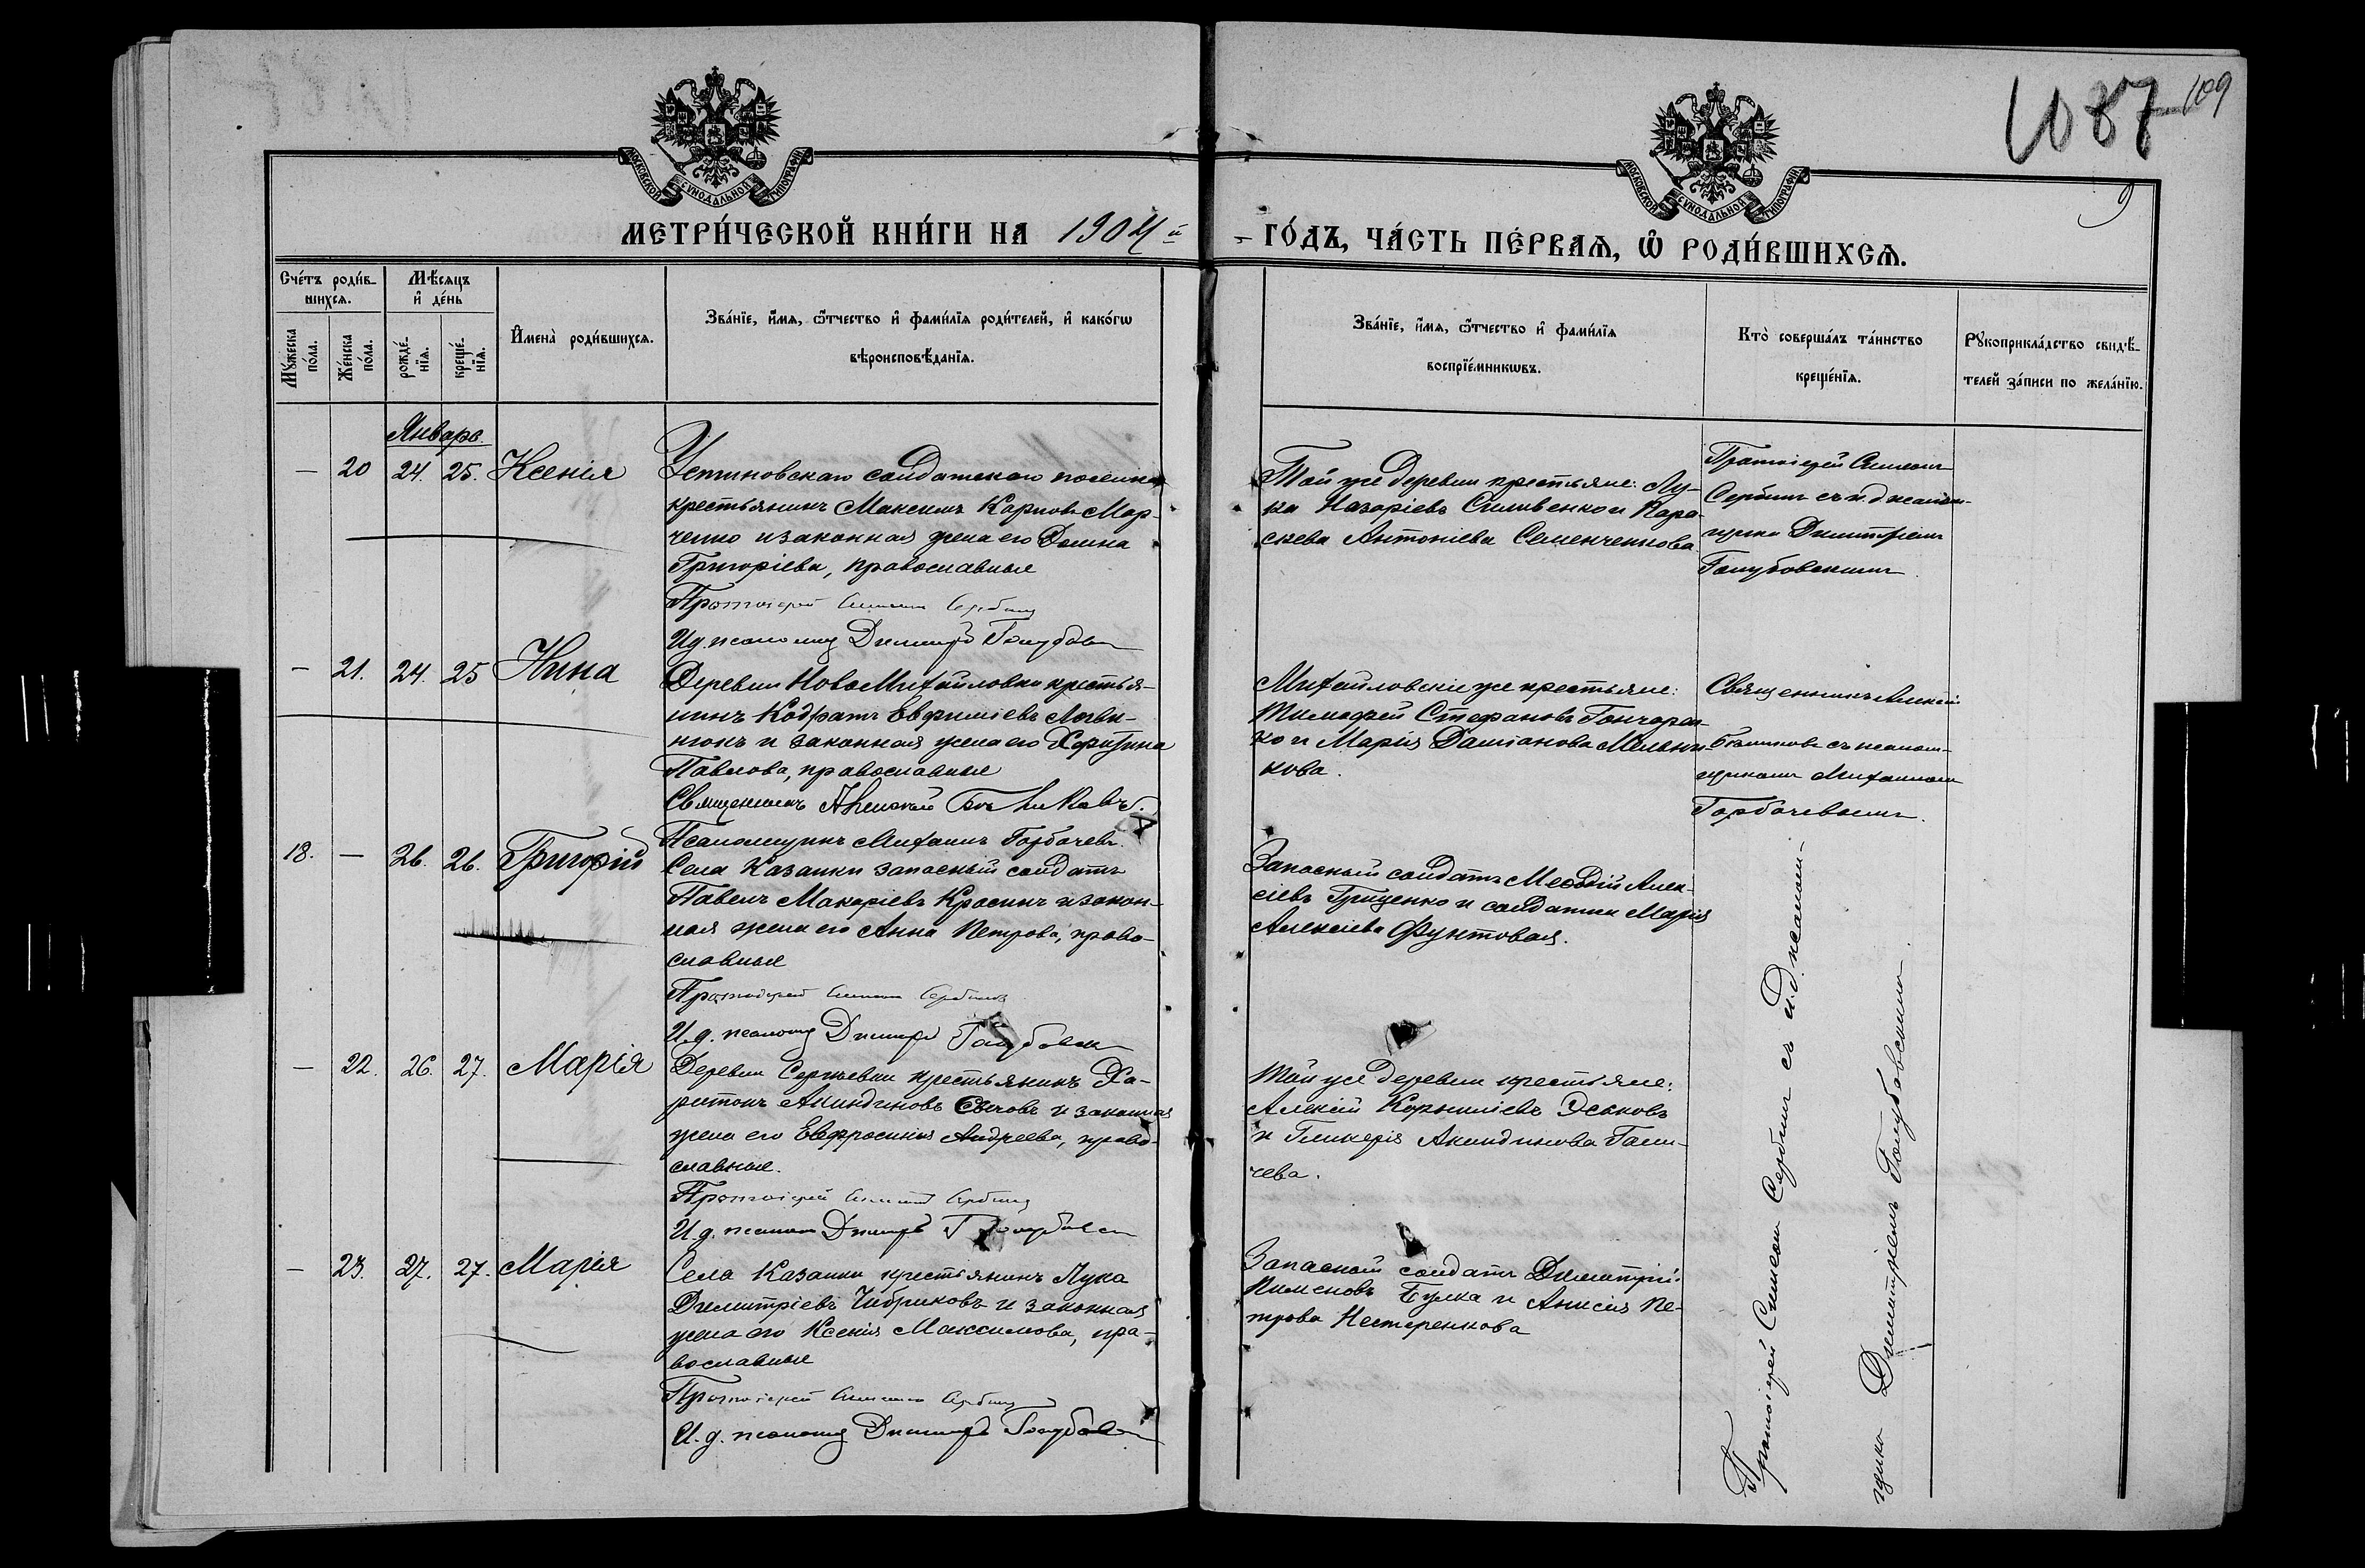 1087 109
9
МОСКОВСКОЙ СѴНОДАЛЬНОЙ ТИПОГРАФІИ
МОСКОВСКОЙ СѴНОДАЛЬНОЙ ТИПОГРАФІИ
МЕТРИ́ЧЕСКОЙ КНИ́ГИ НА 1904й
ГО́ДЪ, ЧА́СТЬ ПЕ́РВАѦ, Ѡ҆ РОДИ́ВШИХСѦ.
Сче́тъ роди́в-
шихсѧ.
Мѣ́сѧцъ
и҆ де́нь
Мꙋ́жеска
по́ла.
Же́нска
по́ла.
рожде́-
нїѧ.
креще́-
нїѧ.
И҆мена̀ роди́вшихсѧ.
Зва́нїе, и҆́мѧ, ѻ҆́тчество и҆ фами́лїѧ роди́телей, и҆ како́гѡ
вѣроисповѣ́данїѧ.
Зва́нїе, и҆́мѧ, ѻ҆́тчество и҆ фами́лїѧ
воспрїе́мникѡвъ.
Кто̀ соверша́лъ та́инство
креще́нїѧ.
Рꙋкоприкла́дство свидѣ́-
телей за́писи по жела́нїю.
Январь.
— 20 24. 25. Ксенія
Устиновскаго солдатскаго поселка
крестьянинъ Максимъ Карповъ Мар-
ченко и законная жена его Домна
Григоріева, православные
Протоіерей Симеонъ Сербинъ
И д. псаломщ Димитрій Голубов
Той же деревни крестьяне: Лу-
ка Назаріевъ Силивенко и Пара-
скева Антоніева Семенченкова
Протоіерей Симеонъ
Сербинъ съ и. д псалом-
щика Димитріемъ
Голубовскимъ.
— 21. 24. 25 Нина
Деревни НовоМихайловки крестья-
нинъ Кодратъ Евфиміевъ
и законная жена его Харитина
Павлова, православные
Священникъ Алексій
Псаломщикъ Михаилъ Горбачевъ.
Михайловскіе же крестьяне:
Тимофей Стефановъ Гончарен-
ко и Марія Даміанова Мельни-
кова.
Священникъ Алексій
съ псалом-
щикомъ Михаиломъ
Горбачевымъ.
18. — 26. 26. Григорій
Села Казанки запасный солдатъ
Павелъ Макаріевъ Красинъ и закон-
ная жена его Анна Петрова, право-
славные
Протоіерей Симеонъ Сербинъ
И. д. псаломщ Димитрій Голубовск
Запасный солдатъ Меѳодій Алек-
сіевъ Гриценко и солдатка Марія
Алексіева Фунтовая.
— 22. 26. 27. Марія
Деревни Сергѣевки крестьянинъ Ха-
ритонъ Акиндиновъ Сычовъ и законная
жена его Евфросинія Андреева, право-
славные.
Протоіерей Симеонъ Сербинъ
И. д. псалом Димитрій Голубовск
Той же деревни крестьяне:
Алексій Корниліевъ Эсьновъ
и Гликерія Акиндинова Гали-
чева.
— 23. 27. 27. Марія
Села Казанки крестьянинъ Лука
Димитріевъ Чибриковъ и законная
жена его Ксенія Максимова, пра-
вославные
Протоіерей Симеонъ Сербинъ
И. д. псаломщ Димитрій Голубов
Запасной солдатъ Димитрій
Пименовъ Булка и Анисія Пе-
трова Нестеренкова
Протоіерей Симеонъ Сербинъ съ и. д. псалом-
щика Димитріемъ Голубовскимъ.